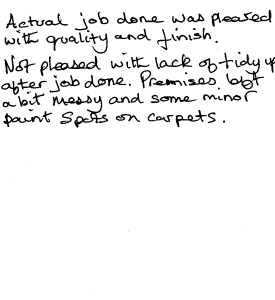 Actual job done was pleased
with quality and finish.
Not pleased with lack of tidy up
after job done. Premises left
a bit messy and some minor
paint spots on carpets.